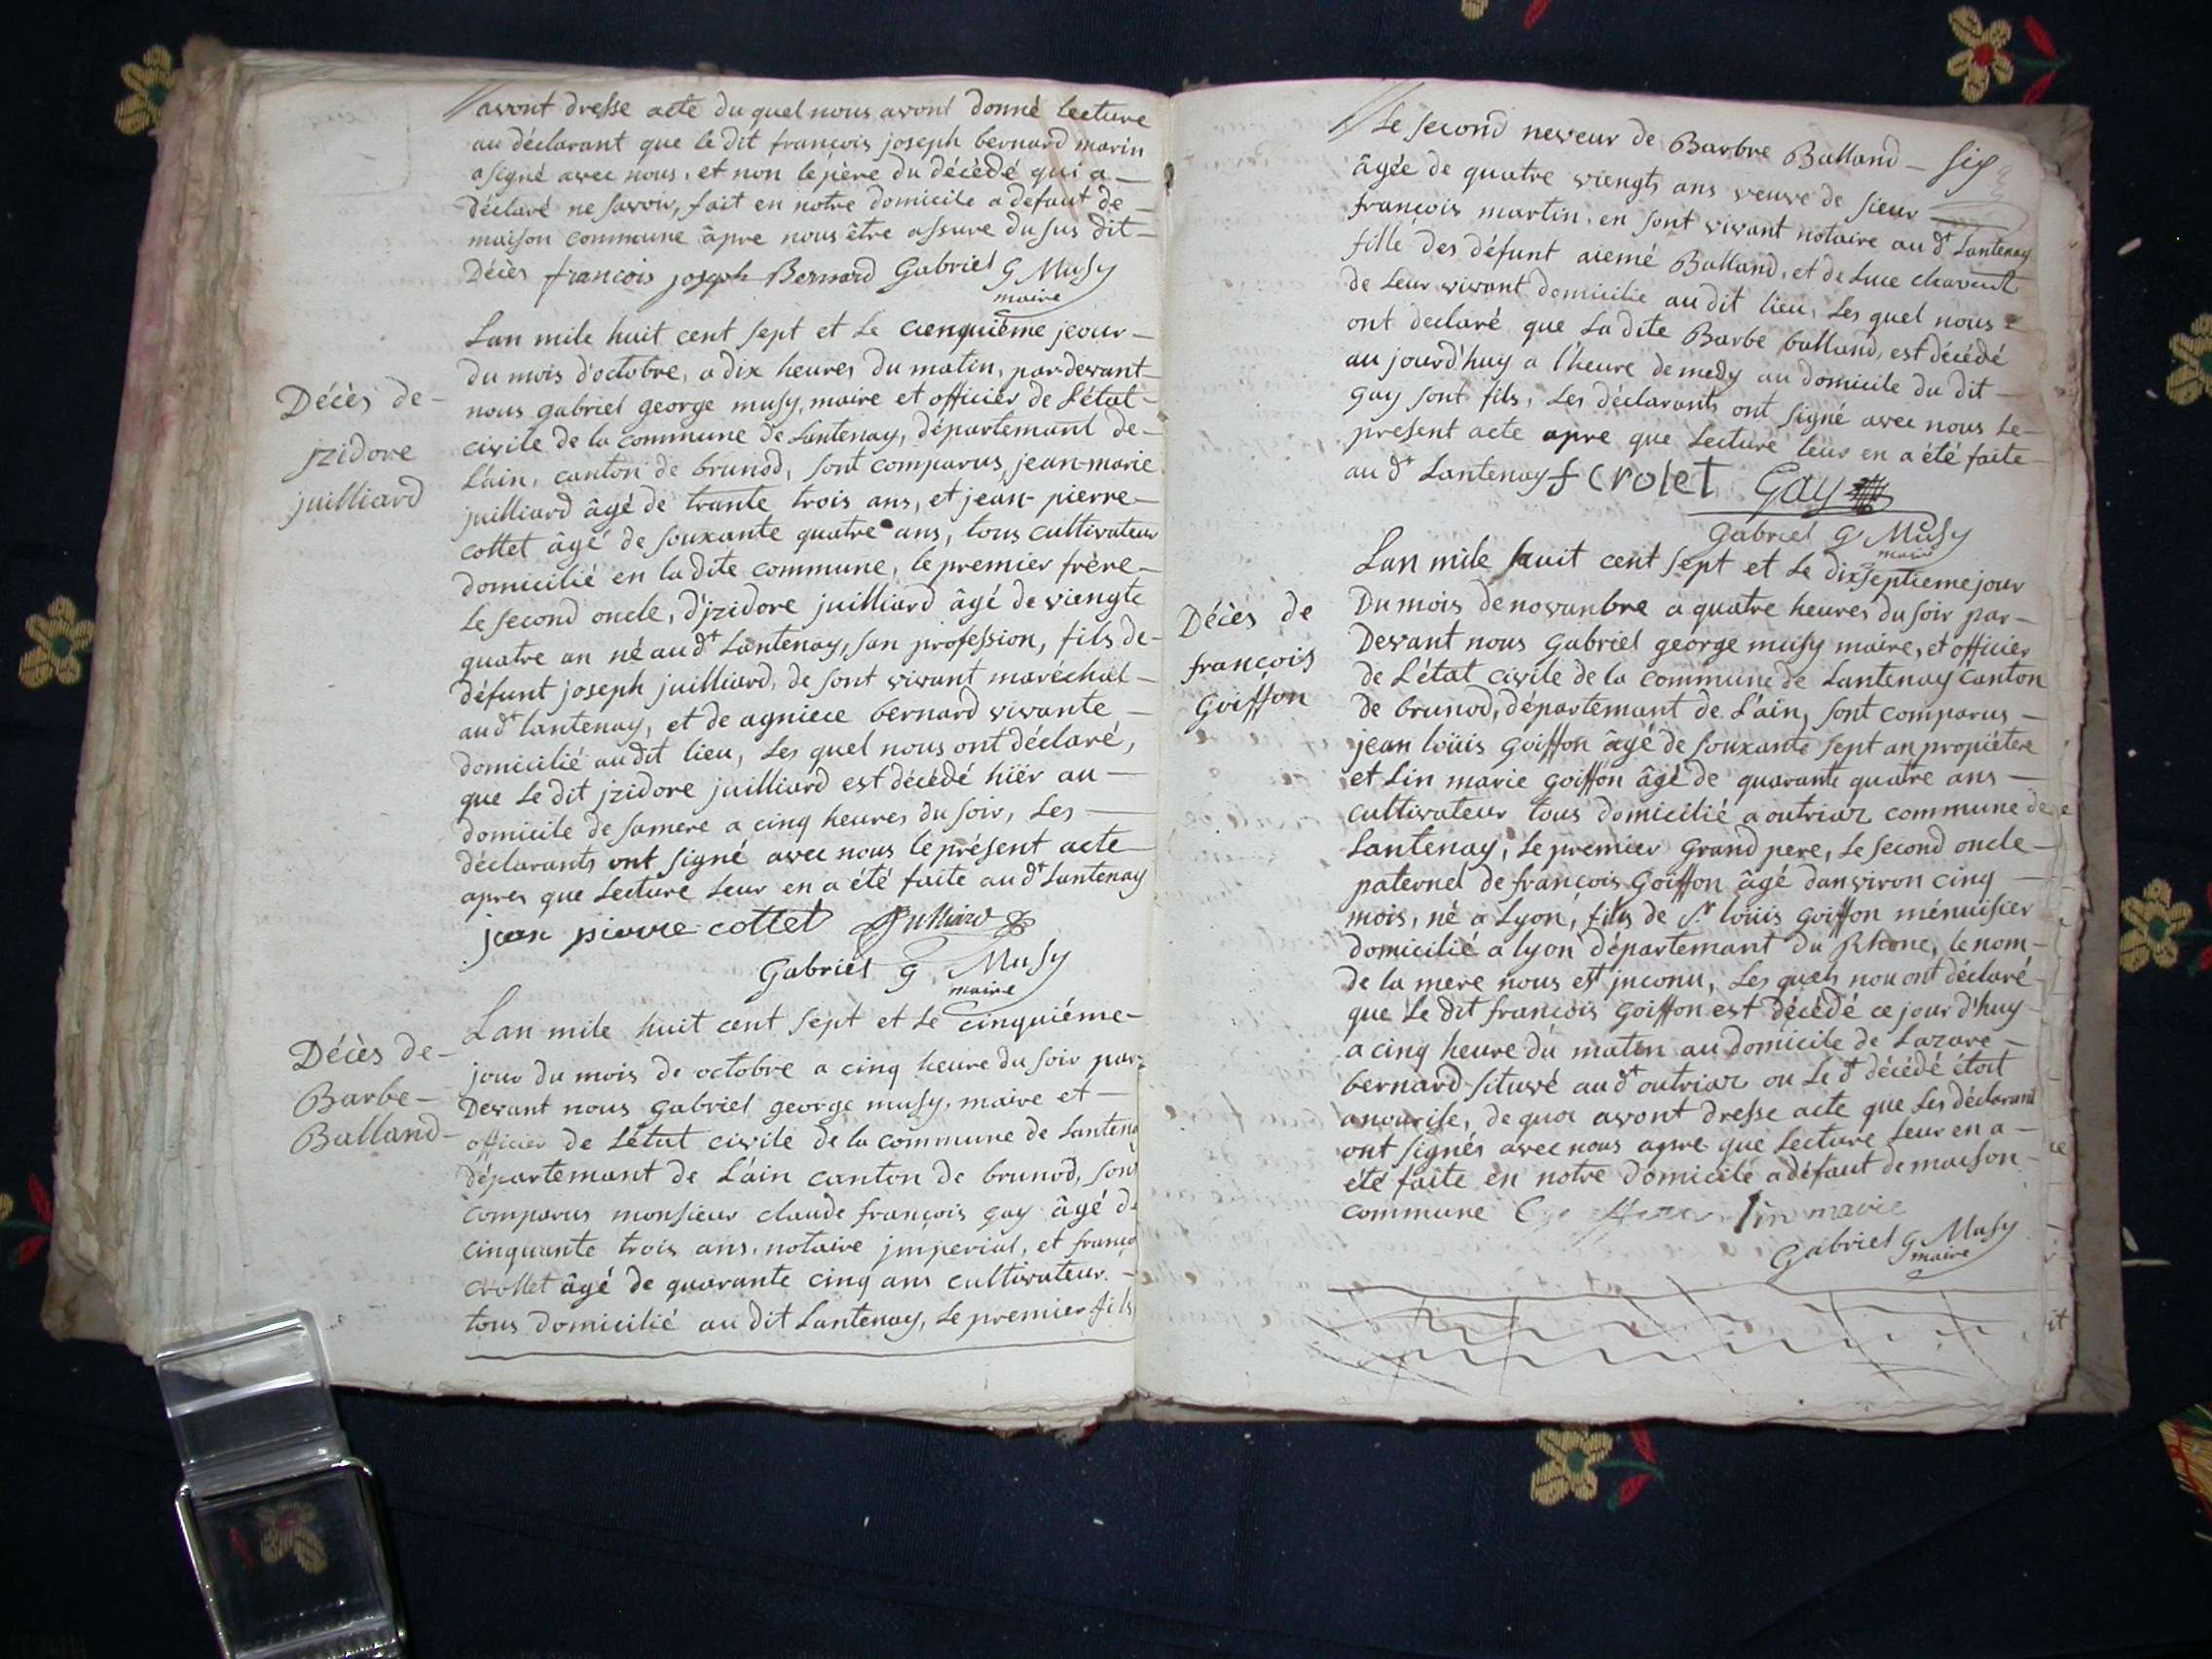 avont dresse acte du quel nous avont donné lecture
au déclarant que le dit françois joseph bernard marin
a signé avec nous, et non le père du décédé qui a
déclaré ne savoir, fait en notre domicile a defaut de
maison commune âpre nous être assure du sus dit
Décès françois joseph Bernard Gabriel G Musy
maire
Décès de
jzidore
juilliard
Lan mile huit cent sept et le cienquième jeour
du mois d'octobre, a dix heures du matin, par-devant
nous gabriel george musy, maire et officier de L'état
civile de la commune de Lantenay, départemant de
L'ain, canton de brunod, sont comparus, jean-marie
juilliard âgé de trante trois ans, et jean-pierre
cottet âgé de souxante quatre ans, tous cultivateur
domicilié en la dite commune, le premier frére
le second oncle, d'jzidore juilliard âgé de viengte
quatre an né au dt Lantenay, san profession, fils de
défunt joseph juilliard, de sont vivant maréchal
au dt lantenay, et de agniece bernard vivante
domicilié au dit lieu, Les quel nous ont déclaré,
que Le dit jzidore juilliard est décédé hiër au
domicile de sa mere a cinq heures du soir, Les
déclarants ont signé avec nous le présent acte
apres que Lecture Leur en a été faite au dt Lantenay
jean pierre cottet Julliard
Gabriel G Musy
maire
Décès de
Barbe
Balland
Lan mile huit cent sept et Le cinquiéme
jour du mois de octobre a cinq heure du soir par
Devant nous gabriel george musy, maire et
officier de L'état civile de la commune de Lantena
départemant de L'ain canton de brunod, sont
comparus monsieur claude françois gay âgé de
cinquante trois ans, notaire jmperial, et franço
crollet âgé de quarante cinq ans cultivateur
tous domicilié au dit Lantenay, Le premier fils
Le second neveur de Barbre Balland
âgée de quatre viengts ans veuve de sieur
françois martin, en sont vivant notaire au dt Lantenay
fille des défunt aiemé Balland, et de Luce chavent
de Leur vivant domicilie au dit lieu, Les quel nous
ont declaré que La dite Barbe balland, est décédé
au jourd'huy a l'heure de medy au domicile du dit
gay sont fils, Les déclarants ont signé avec nous Le
present acte apre que Lecture leur en a été faite
au dt Lantenay f crolet Gay
Gabriel G Musy
maire
Décès de
françois
Goiffon
Lan mile huit cent sept et Le dixseptieme jour
Du mois de novanbre a quatre heures du soir par
Devant nous Gabriel george musy maire, et officier
de L'état civile de la commune de Lantenay canton
de brunod, départemant de L'ain, sont comparus
jean loüis Goiffon âgé de souxante sept an propiétere
et Lin marie goiffon âgé de quarante quatre ans
cultivateur tous domicilié a outriaz commune de
Lantenay, Le premier Grand pere, Le second oncle
paternel de françois Goiffon âgé danviron cinq
mois, né a Lyon, fils de Sr loüis goiffon ménuisier
domicilié a lyon départemant du Rhone, le nom
de la mere nous est jnconu, Les quels nou ont déclaré
que Le dit françois Goiffon est décédé ce jour d'huy
a cinq heure du maten au domicile de Lazare
bernard situvé au dt outriaz ou Le dt décédé étoit
a nourise, de quoi avont dresse acte que Les déclarant
ont signés avec nous apre que Lecture Leur en a
été faite en notre domicile a défaut de maison
commune lin marie
Gabriel G Musy
maire